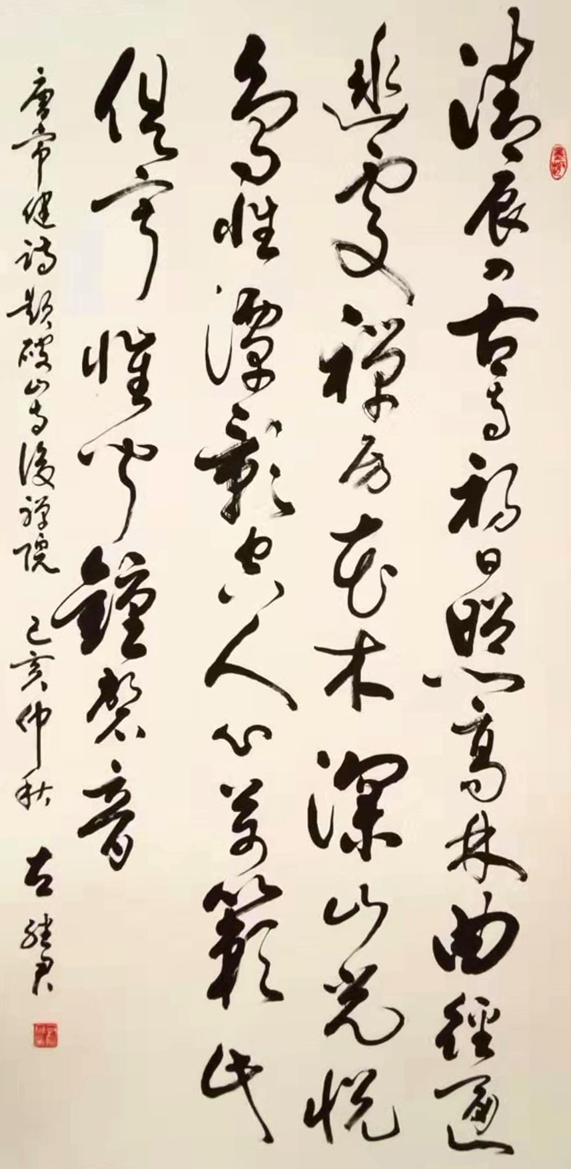 清辰入古寺初日照高林曲徑通
幽處禪房花木深山光悦
鳥性潭影空人心萬籟此
俱寂惟聞鐘磬音
唐常健詩題破山寺後禪院 己亥仲秋